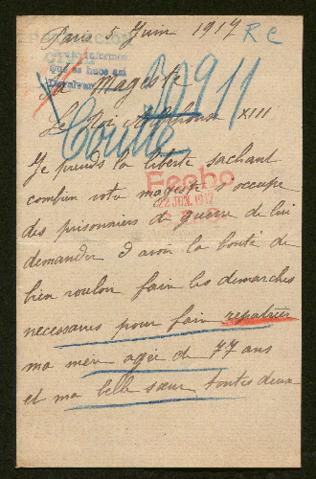 Paris 5 Juin 1917 RC
que se hace en
20911
Sa Magesté
Le Roi Alphonse XIII
Coutte
Je prends la liberté sachant
Fecho
22 JUN. 1917
combien votre magesté s'occupe
des prisonniers de guerre de lui
demander d'avoir la bonté de
bien vouloir faire les demarches
necessaires pour fair repatrier
ma mere agée de 77 ans
et ma belle sœur toutes deux